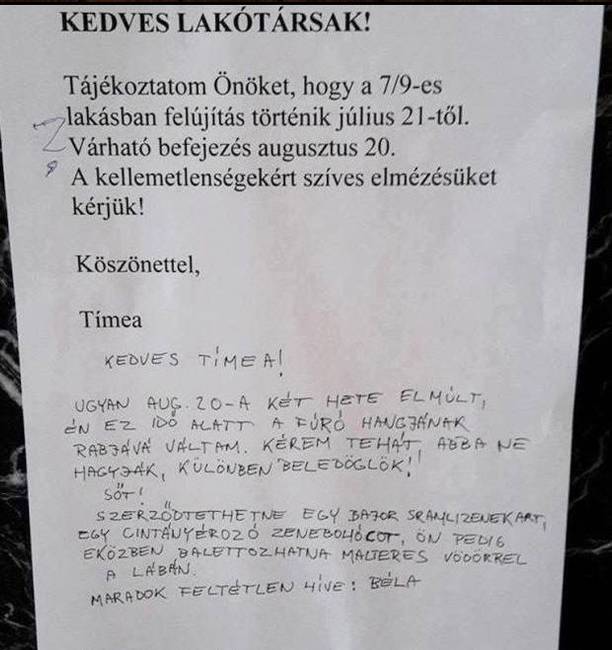 KEDVES LAKÓTÁRSAK!
Tájékoztatom Önöket, hogy a 7/9-es
lakásban felújítás történik július 21-től.
Várható befejezés augusztus 20.
A kellemetlenségekért szíves elmézésüket
kérjük!
Köszönettel,
Tímea
KEDVES TÍMEA!
UGYAN AUG. 20-A KÉT HETE ELMÚLT,
ÉN EZ IDŐ ALATT A FÚRÓ HANGJÁNAK
RABJÁVÁ VÁLTAM. KÉREM TEHÁT ABBA NE
HAGYJÁK, KÜLÖNBEN BELEDÖGLÖK!
SŐT!
SZERZŐDTETHETNE EGY BAJOR SRAMLIZENEKART,
EGY CINTÁNYÉROZÓ ZENEBOHÓCOT, ÖN PEDIG
EKÖZBEN BALETTOZHATNA MALTERES VÖDÖRREL
A LÁBÁN.
MARADOK FELTÉTLEN HÍVE: BÉLA